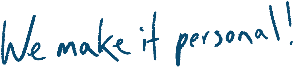 We make it personal!